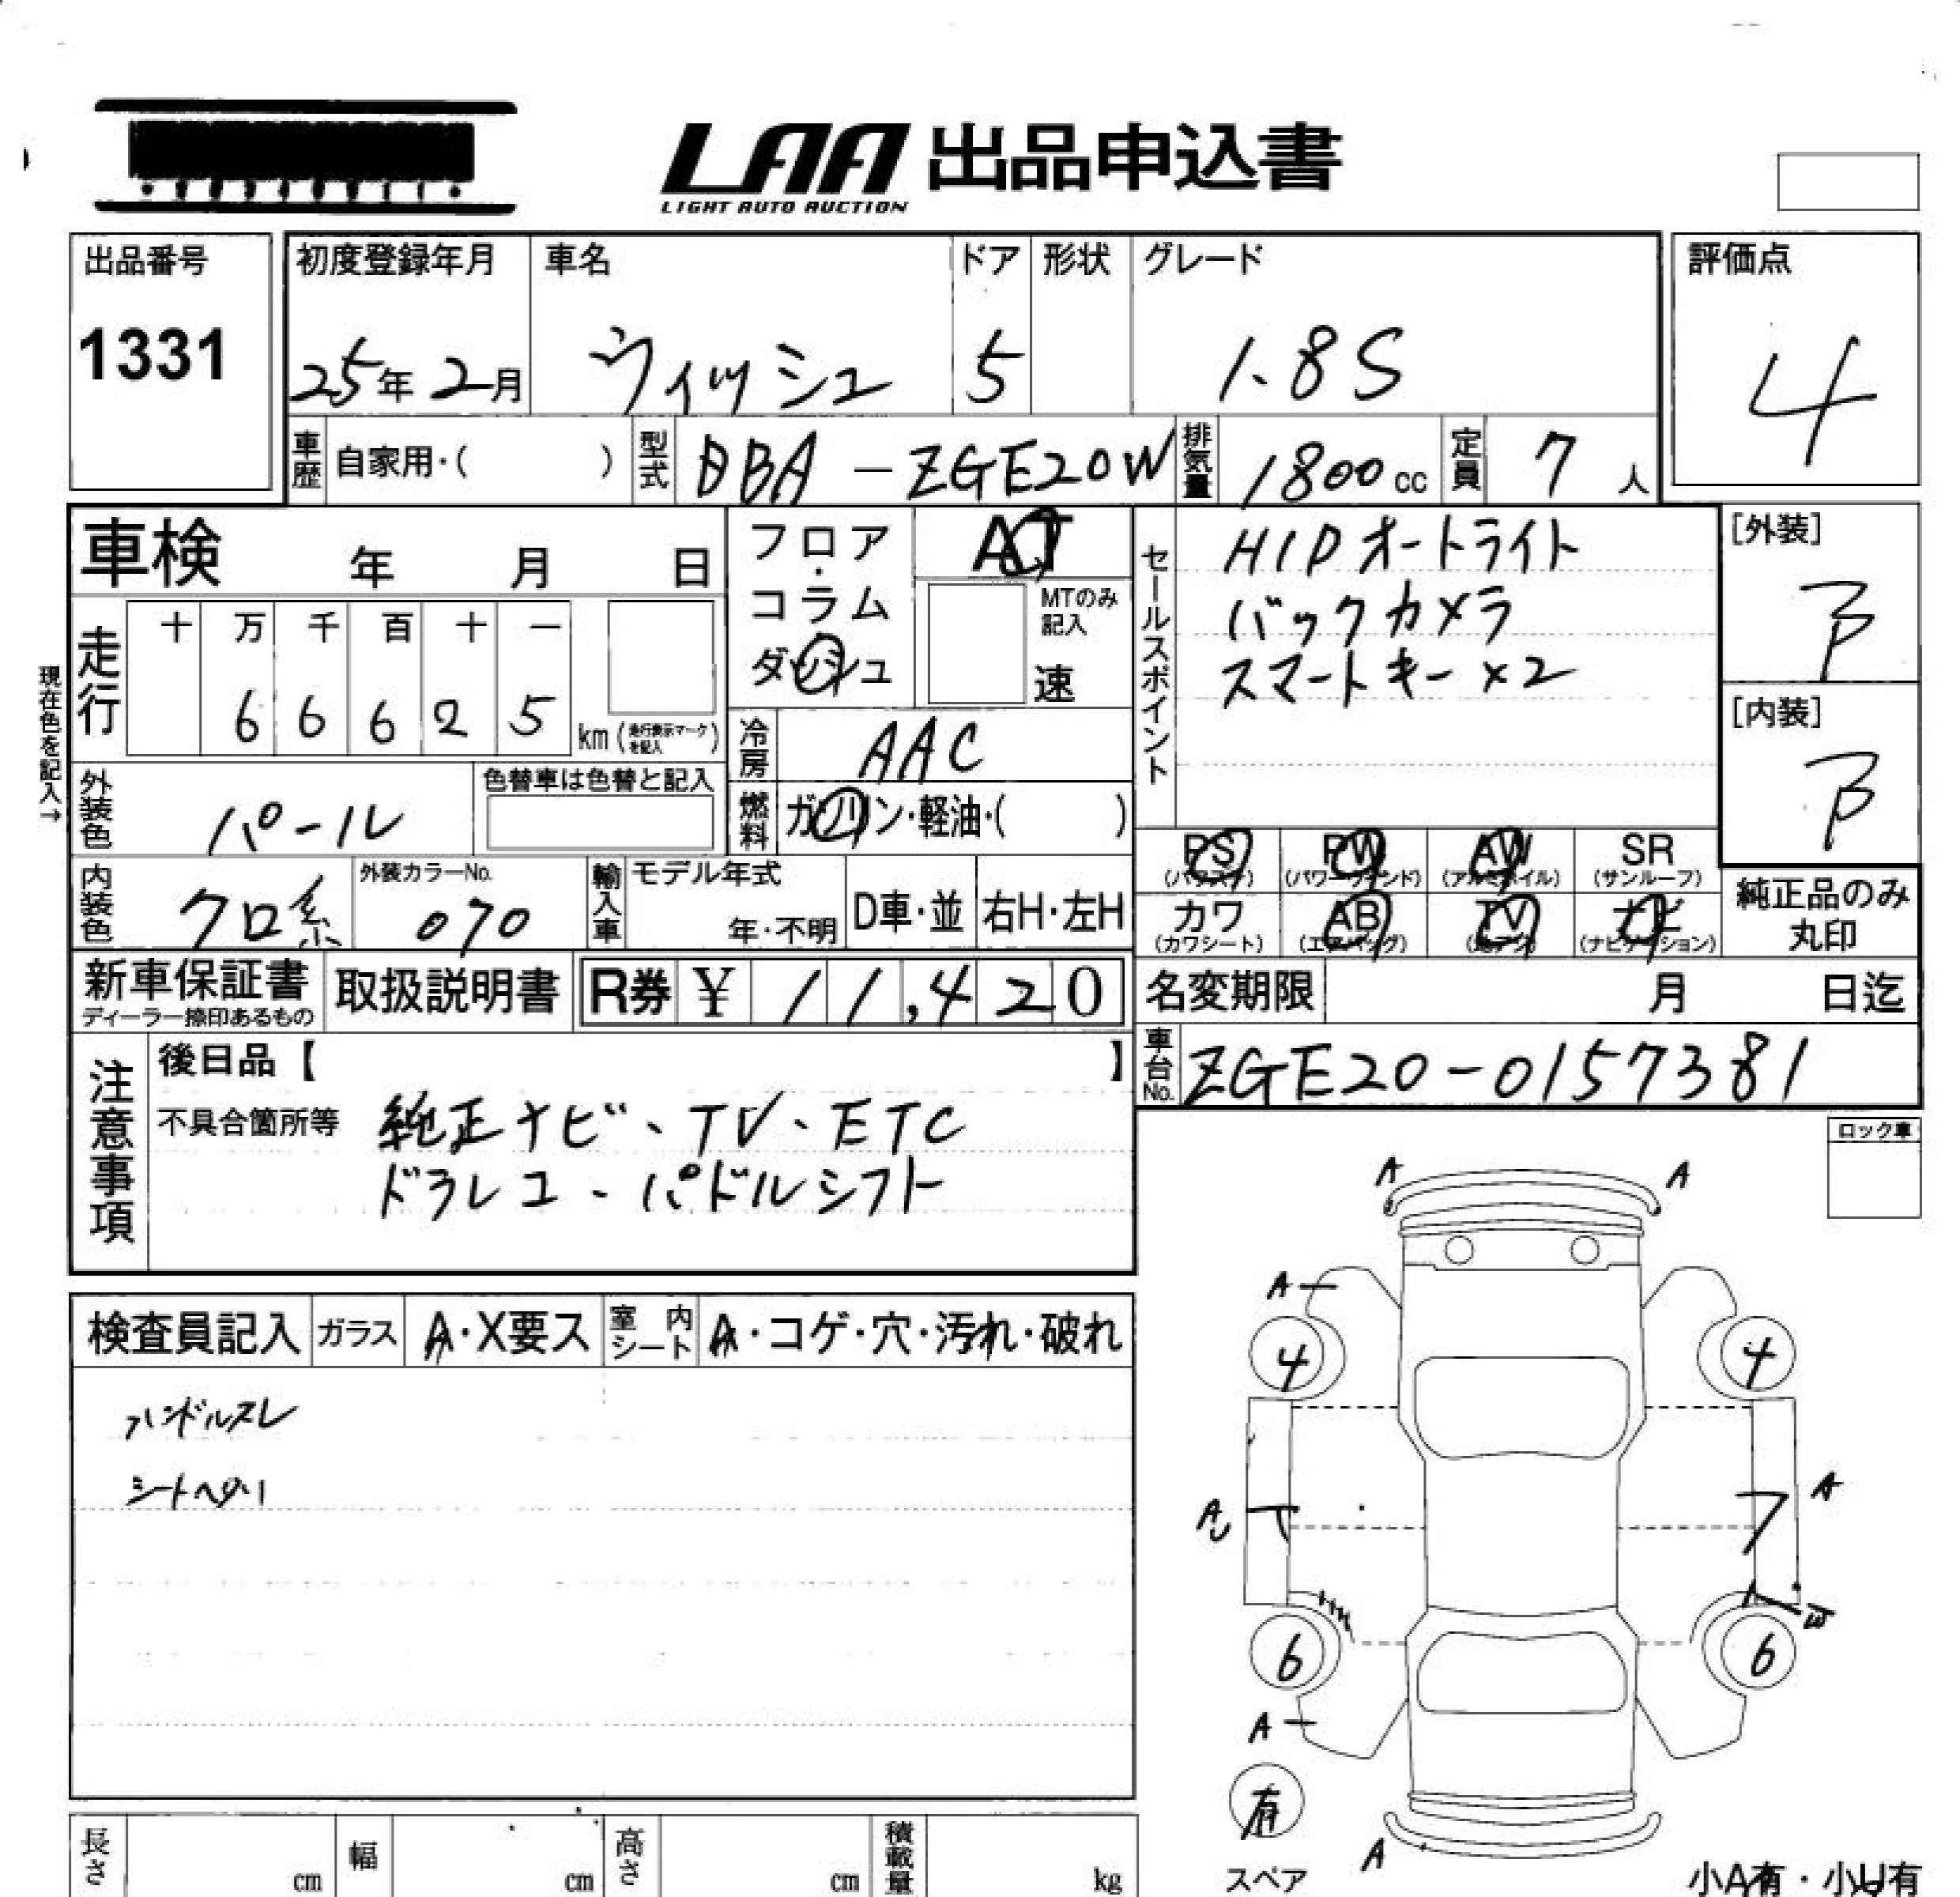 LAA 出品申込書
LIGHT AUTO AUCTION
出品番号
1331
初度登録年月
25年 2月
車名
ウィッシュ
ドア
5
形状
グレード
1.8S
評価点
4
車歴
自家用・( )
型式
DBA-ZGE20W
排気量
1800cc
定員
7人
車検 年 月 日
フロア・コラム
ダッシュ
AT
MTのみ記入
速
セールスポイント
HIDオートライト
バックカメラ
スマートキー×2
[外装]
B
[内装]
B
現在色を記入→
走行
十 万 千 百 十 一
6 6 6 2 5
km(走行表示マークを記入)
冷房
AAC
外装色
パール
色替車は色替と記入
燃料
ガソリン・軽油・( )
内装色
クロ系
外装カラーNo.
070
輸入車
モデル年式
年・不明
D車・並
右H・左H
PS
(パワステ)
PW
(パワーウィンド)
AW
(アルミホイル)
SR
(サンルーフ)
カワ
(カワシート)
AB
(エアバッグ)
TV
ナビ
(ナビゲーション)
純正品のみ
丸印
新車保証書
ディーラー捺印あるもの
取扱説明書
R券 ¥ 11,420
名変期限 月 日迄
車台No.
ZGE20-0157381
注意事項
後日品【 】
不具合箇所等
純正ナビ、TV、ETC
ドラレコ、パドルシフト
ロック車
検査員記入
ガラス
A・X要ス
室内シート
A・コゲ・穴・汚れ・破れ
ハンドルスレ
シートヘタリ
A
A
A
4
4
A
A
6
6
W
A
有
スペア
A
小A有・小U有
長さ cm
幅 cm
高さ cm
積載量 kg